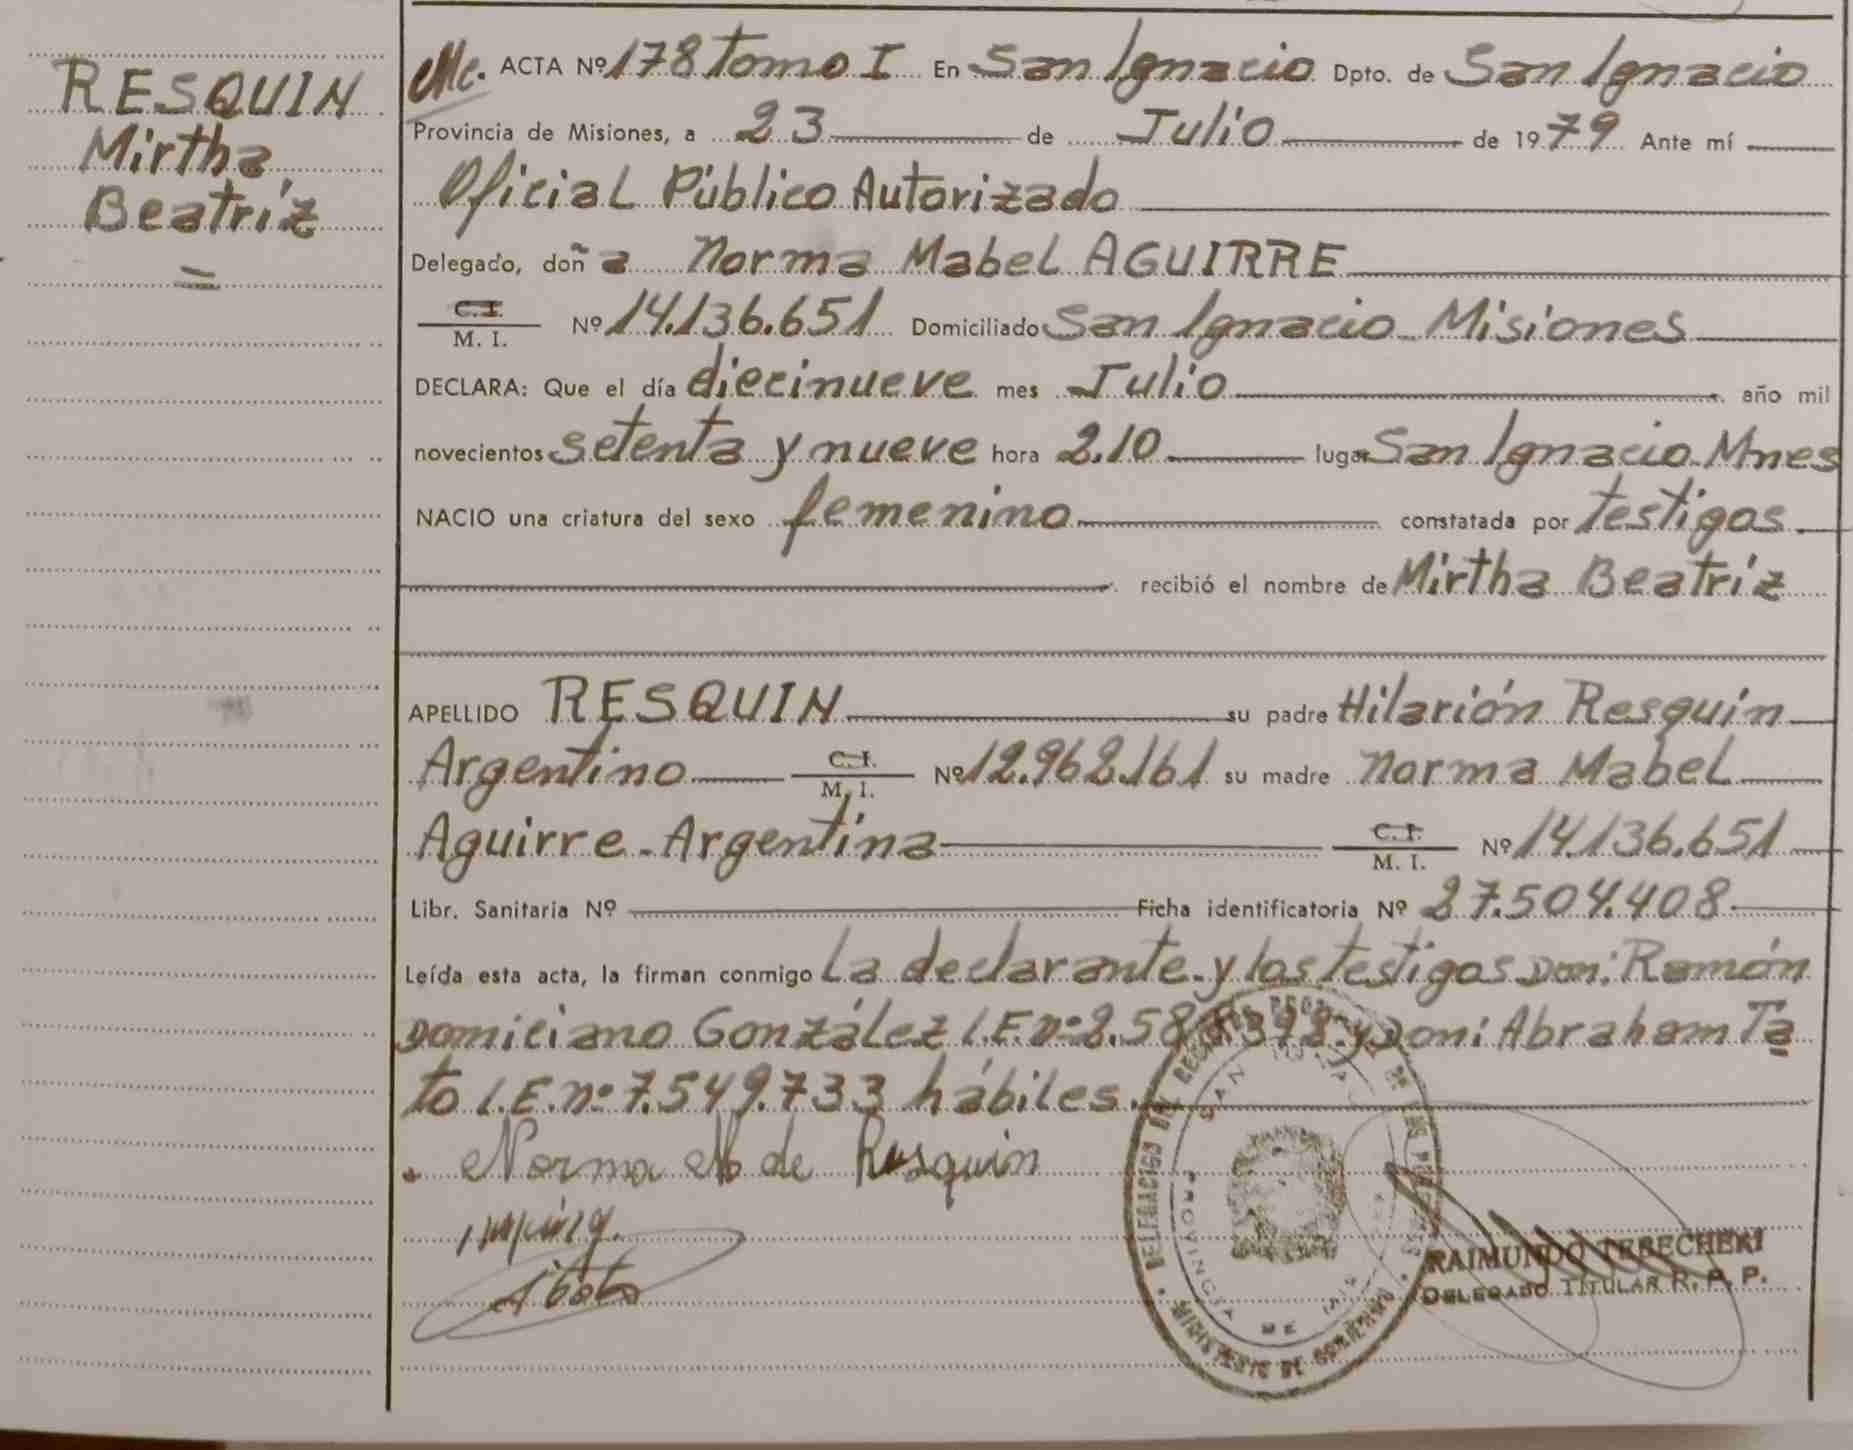 RESQUIN
Mirtha
Beatríz
ACTA Nº 178 Tomo I En San Ignacio Dpto. de San Ignacio
Provincia de Misiones, a 23 de Julio de 1979 Ante mí
Oficial Público Autorizado
Delegado, doña Norma Mabel AGUIRRE
C.I.
M. I. Nº 14.136.651 Domiciliado San Ignacio Misiones
DECLARA: Que el día diecinueve mes Julio año mil
novecientos setenta y nueve hora 2.10 lugar San Ignacio-Mnes
NACIO una criatura del sexo femenino constatada por testigos
recibió el nombre de Mirtha Beatríz
APELLIDO RESQUIN su padre Hilarión Resquín
Argentino C.I. M.I. Nº 12.962.161 su madre Norma Mabel
Aguirre-Argentina C.I. M. I. Nº 14.136.651
Libr. Sanitaria Nº Ficha identificatoria Nº 27.504.408
Leída esta acta, la firman conmigo la declarante-y los testigos Don: Ramón
Domiciano González L.E.nº y Don: Abraham Ta
to L.E.nº 7.549.733 hábiles.
Norma de Resquin
DELEGACION DE LAS PERSONAS
MINISTERIO DE GOBIERNO
SAN IGNACIO
PROVINCIA DE
RAIMUNDO TEBECHERI
DELEGADO TITULAR R. P. P.